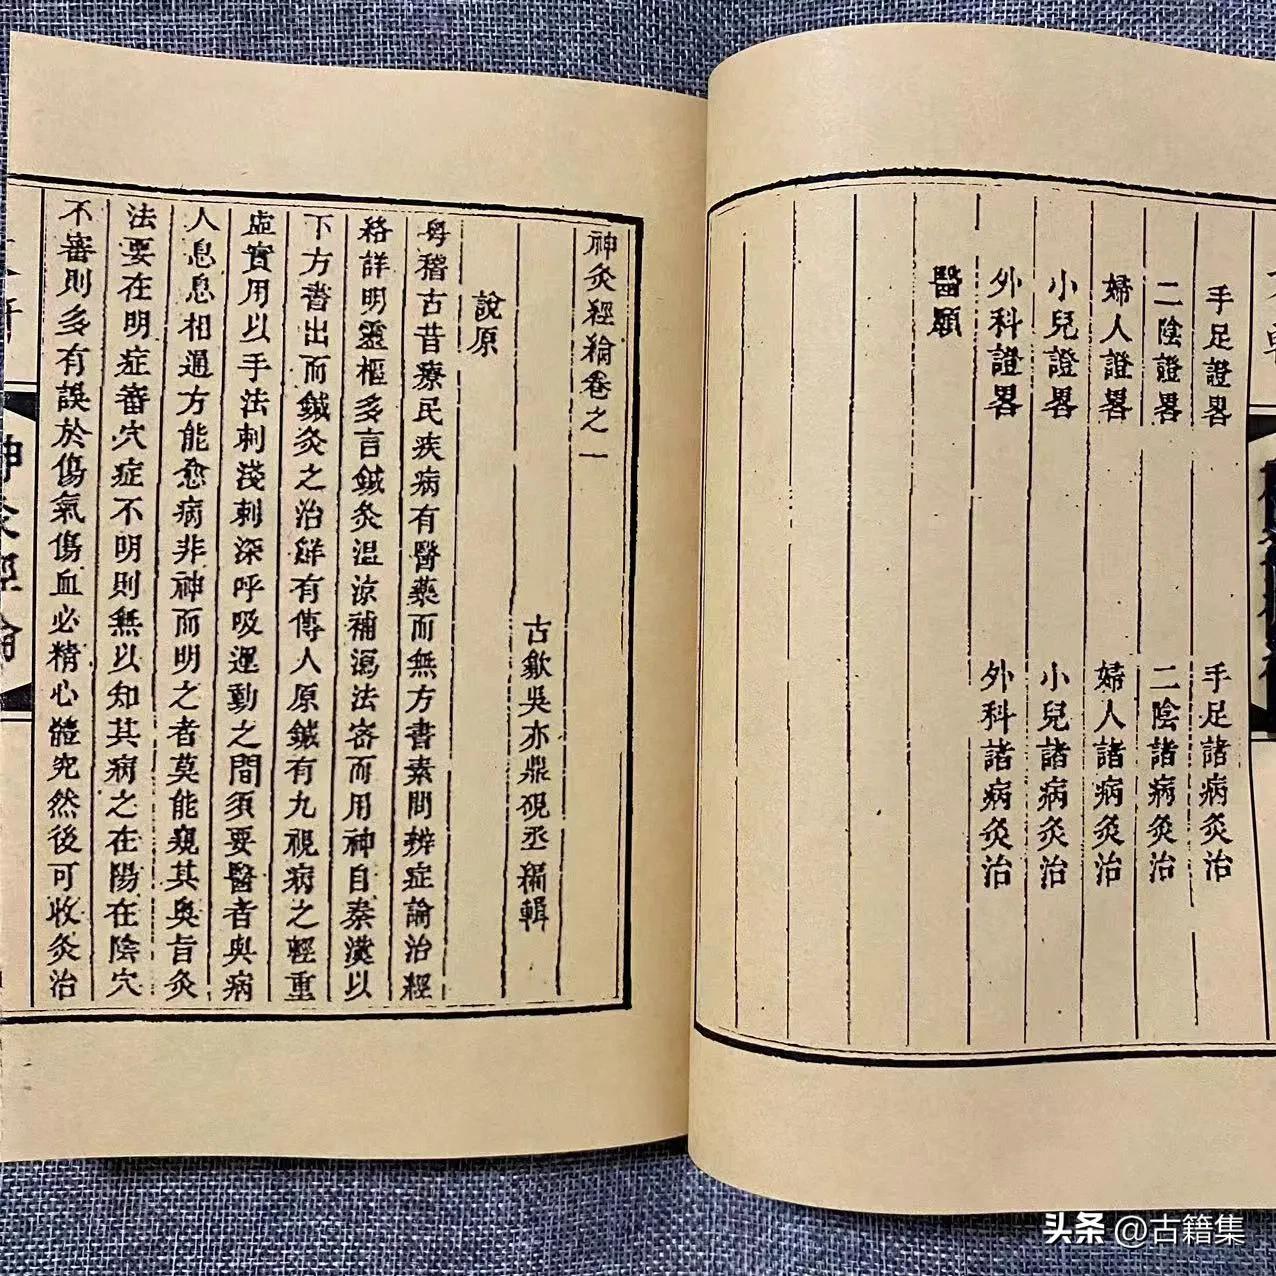 手足證畧　手足諸病灸治
二陰證畧　二陰諸病灸治
婦人證畧　婦人諸病灸治
小兒證畧　小兒諸病灸治
外科證畧　外科諸病灸治
醫願
神灸經綸卷之一
古歙吳亦鼎硯丞編輯
說原
粵稽古昔療民疾病有醫藥而無方書素問辨症論治經
絡詳明靈樞多言鍼灸温涼補瀉法審而用神自秦漢以
下方書出而鍼灸之治鮮有傳人原鍼有九視病之輕重
虛實用以手法刺淺刺深呼吸運動之間須要醫者與病
人息息相通方能愈病非神而明之者莫能窺其奥旨灸
法要在明症審穴症不明則無以知其病之在陽在陰穴
不審則多有誤於傷氣傷血必精心體究然後可收灸治
神灸經綸
头条 @古籍集